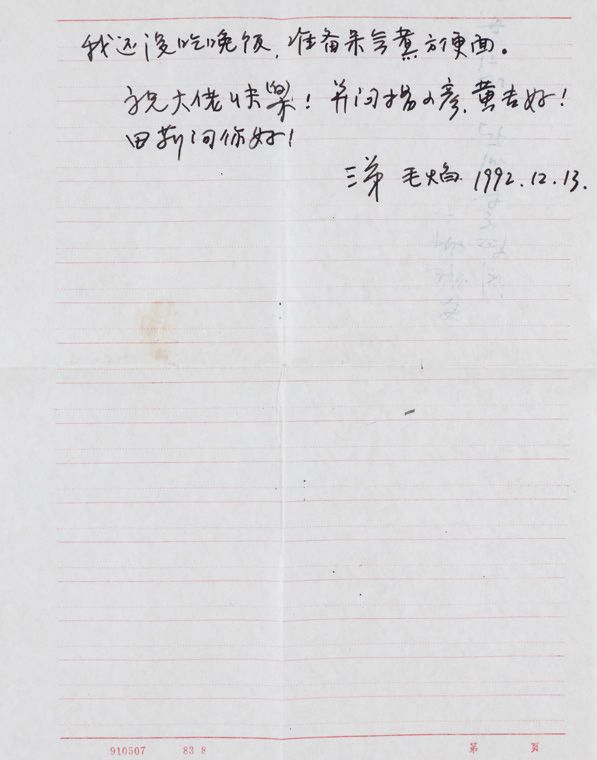 我还没吃晚饭,准备来气煮方便面。
祝大佬快乐!并问杨小彦,黄专好!
田莉问你好!
三弟 毛焰 1992.12.13.
910507 83 8 第 页